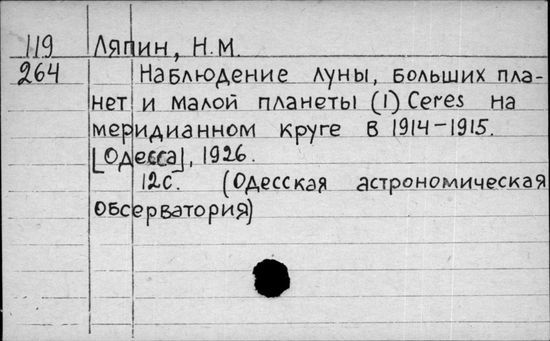 119 Ляпин, Н.М.
264 Наблюдение луны, больших пла-
нет и малой планеты (1) Ceres на
меридианном круге в 1914-1915.
[Одесса], 1926.
12с. (Одесская астрономическая
обсерватория)